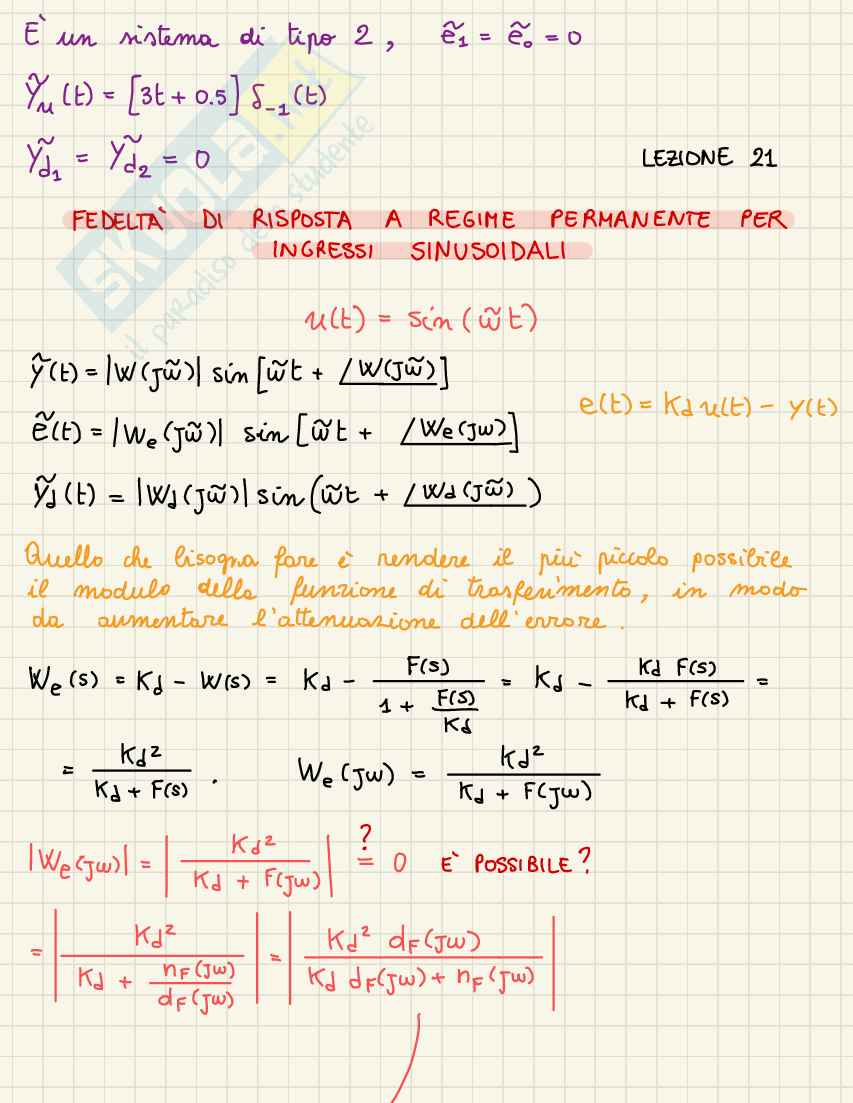 È un sistema di tipo 2, ẽ₁ = ẽ₀ = 0
Ỹᵤ(t) = [3t + 0.5] δ₋₁(t)
Ỹd₁ = Ỹd₂ = 0
LEZIONE 21
FEDELTÀ DI RISPOSTA A REGIME PERMANENTE PER
INGRESSI SINUSOIDALI
u(t) = sin(ω̃t)
ỹ(t) = |W(Jω̃)| sin[ω̃t + ∠W(Jω̃)]
e(t) = Kd u(t) - y(t)
ẽ(t) = |We(Jω̃)| sin[ω̃t + ∠We(Jω)]
ỹd(t) = |Wd(Jω̃)| sin(ω̃t + ∠Wd(Jω̃))
Quello che bisogna fare è rendere il più piccolo possibile
il modulo della funzione di trasferimento, in modo
da aumentare l'attenuazione dell'errore.
We(s) = Kd - W(s) = Kd - F(s) / (1 + F(s)/Kd) = Kd - Kd F(s) / (Kd + F(s)) =
= Kd² / (Kd + F(s)). We(Jω) = Kd² / (Kd + F(Jω))
|We(Jω)| = |Kd² / (Kd + F(Jω))| =? 0 È POSSIBILE?
= |Kd² / (Kd + nF(Jω)/dF(Jω))| = |Kd² dF(Jω) / (Kd dF(Jω) + nF(Jω))|
SKUOLA.net
il paradiso dello studente